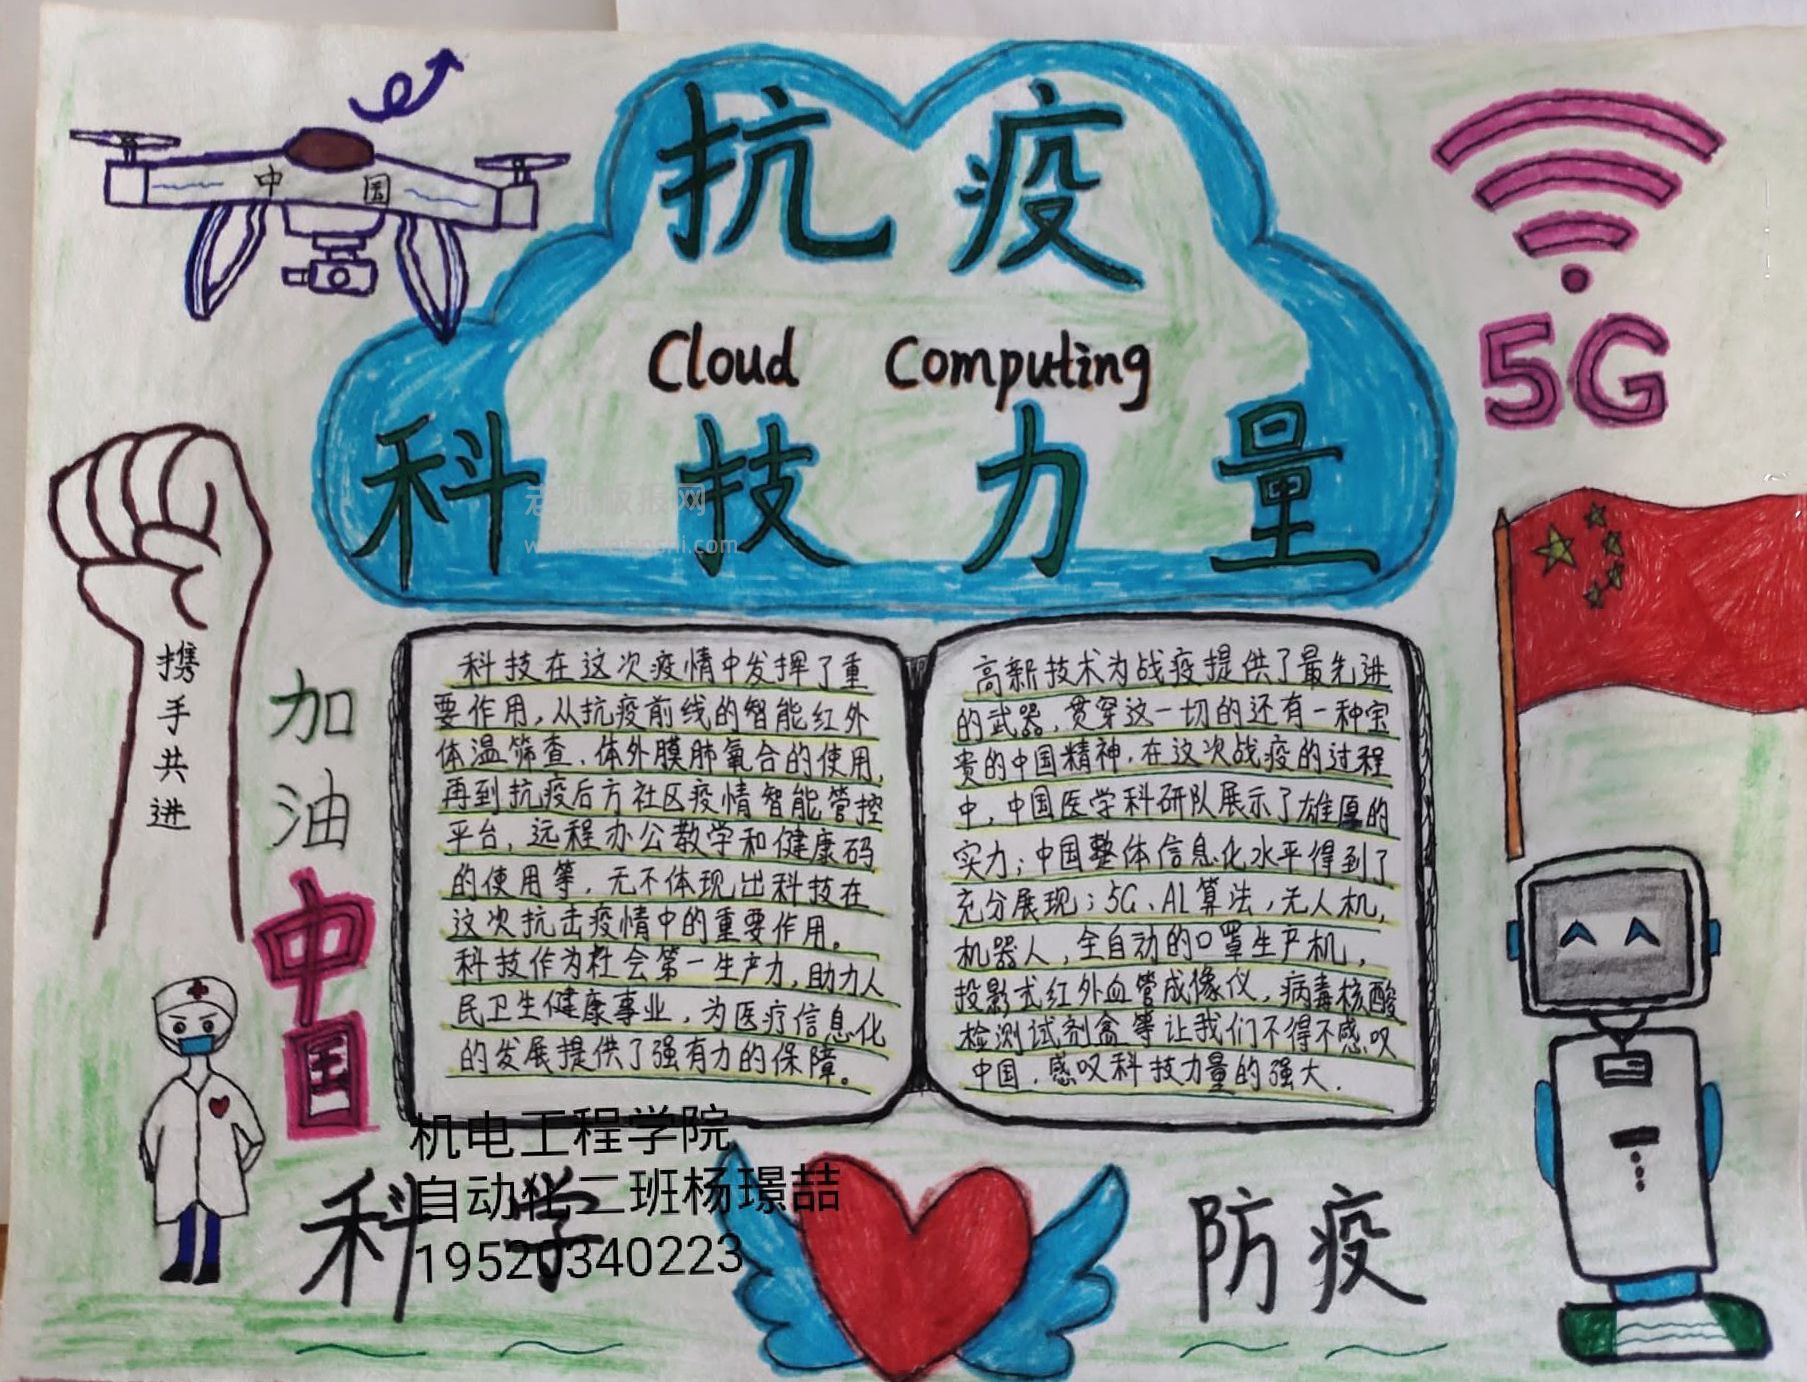 中 国
抗 疫
Cloud Computing
科 技 力 量
5G
携
手
共
进
加
油
中
国
科技在这次疫情中发挥了重
要作用,从抗疫前线的智能红外
体温筛查、体外膜肺氧合的使用,
再到抗疫后方社区疫情智能管控
平台,远程办公教学和健康码
的使用等,无不体现出科技在
这次抗击疫情中的重要作用。
科技作为社会第一生产力,助力人
民卫生健康事业,为医疗信息化
的发展提供了强有力的保障。
高新技术为战疫提供了最先进
的武器,贯穿这一切的还有一种宝
贵的中国精神.在这次战疫的过程
中,中国医学科研队展示了雄厚的
实力;中国整体信息化水平得到了
充分展现;5G、AI算法,无人机,
机器人,全自动的口罩生产机,
投影式红外血管成像仪,病毒核酸
检测试剂盒等让我们不得不感叹
中国.感叹科技力量的强大.
机电工程学院
自动化二班杨璟喆
19520340223
科 学
防 疫
老师板报网